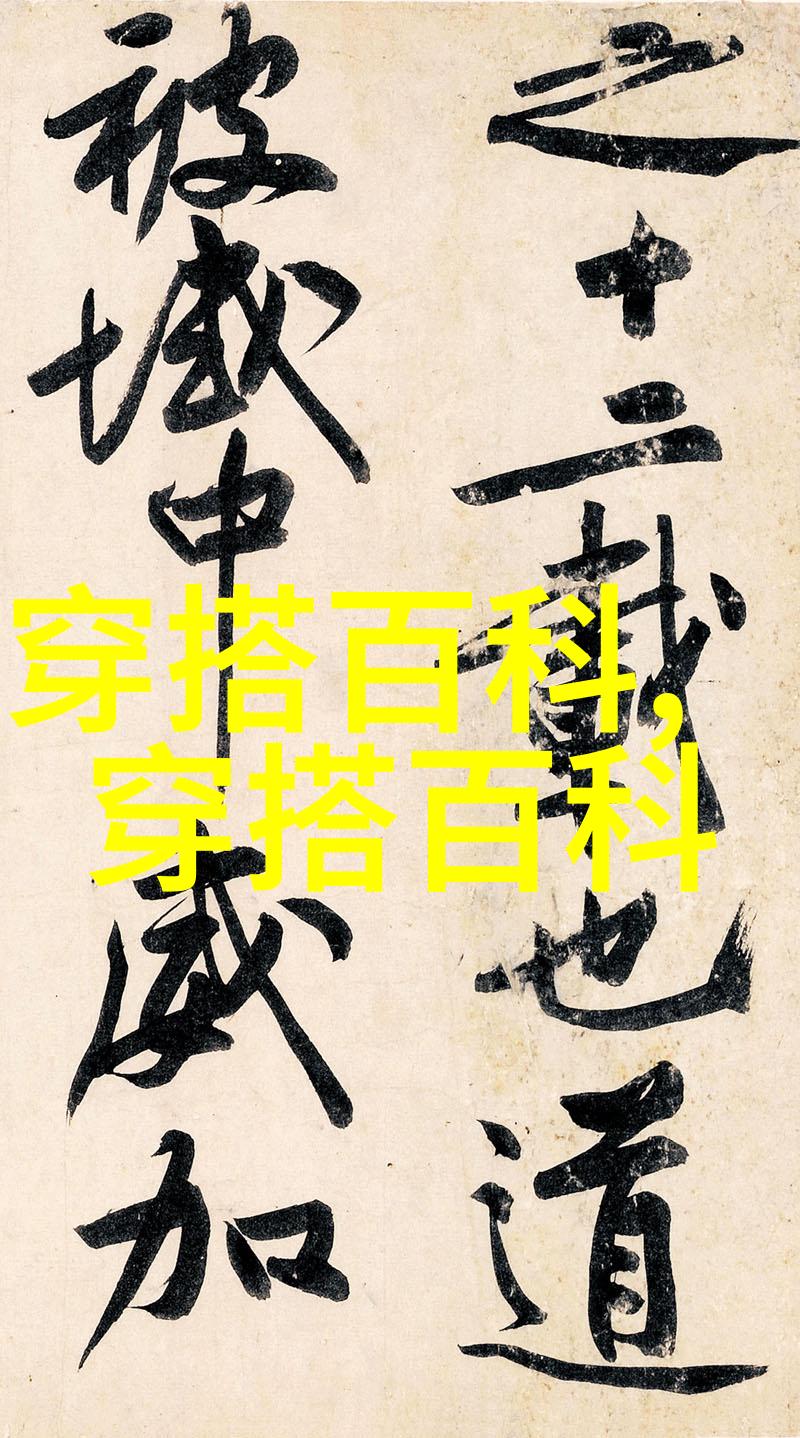 之十二載也道
被域中威加
穿搭百科,
穿搭百科